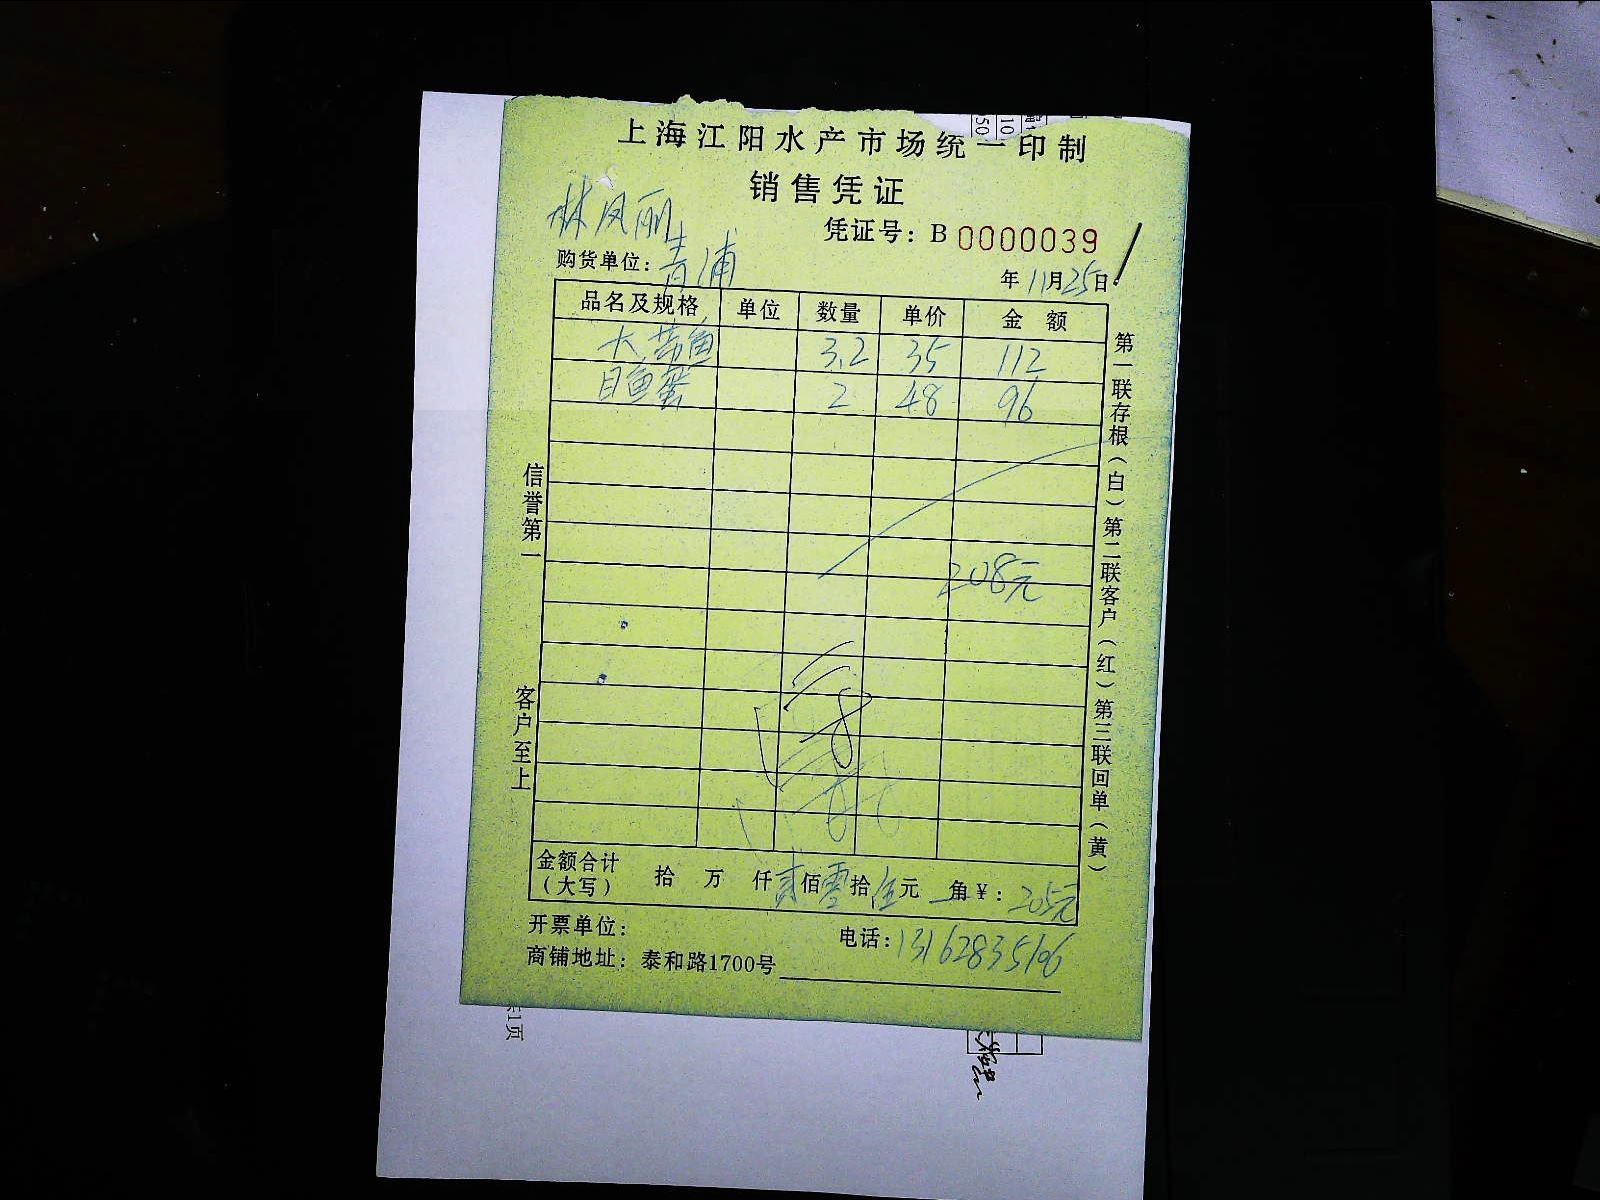 上海江阳水产市场统一印制
销售凭证
林凤丽
凭证号：B 0000039
购货单位：青浦
年 11月25日
品名及规格 单位 数量 单价 金 额
大带鱼 3.2 35 112
目鱼蛋 2 48 96
208元
信誉第一
客户至上
第一联存根（白）第二联客户（红）第三联回单（黄）
金额合计（大写） 拾 万 仟 贰佰零拾伍元 角￥：205元
开票单位：
电话：13162835196
商铺地址：泰和路1700号